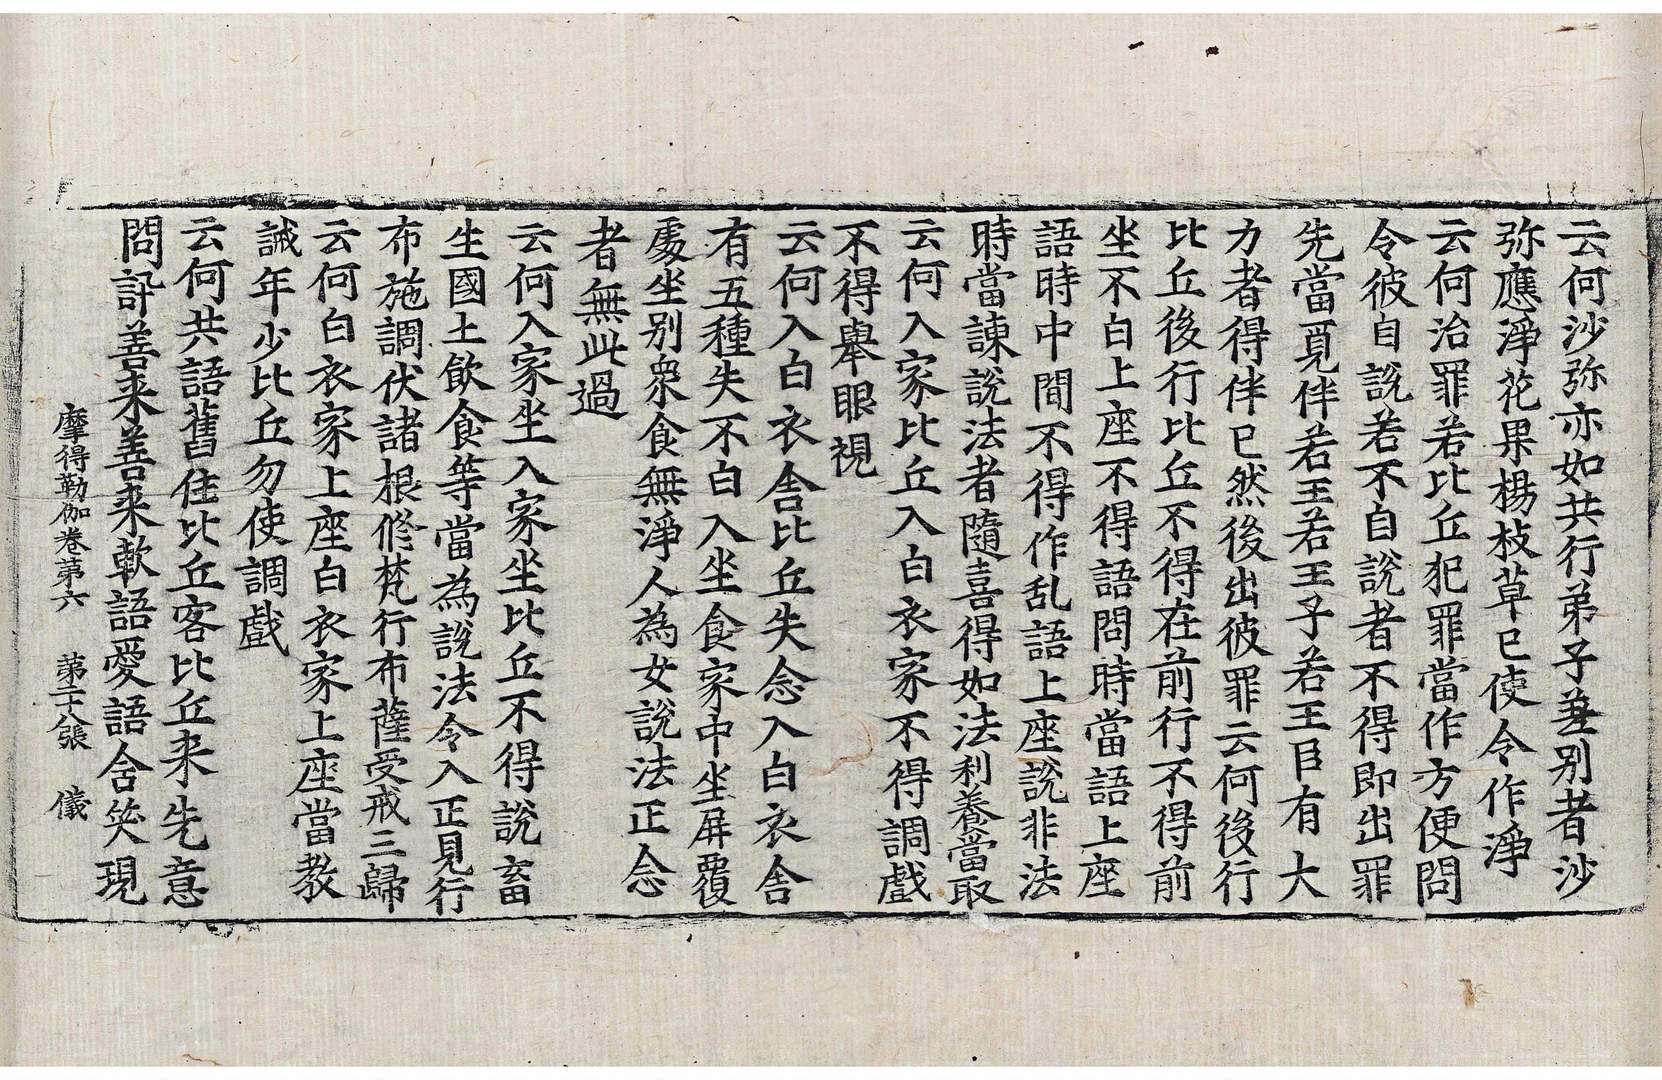 云何沙弥亦如共行弟子差别者沙
弥應淨花果楊枝草已使令作淨
云何治罪若比丘犯罪當作方便問
令彼自說若不自說者不得即出罪
先當覓伴若王若王子若王臣有大
力者得伴已然後出彼罪云何後行
比丘後行比丘不得在前行不得前
坐不白上座不得語問時當語上座
語時中間不得作乱語上座說非法
時當諫說法者隨喜得如法利養當取
云何入家比丘入白衣家不得調戲
不得舉眼視
云何入白衣舍比丘失念入白衣舍
有五種失不白入坐食家中坐屏覆
處坐别衆食無淨人為女說法正念
者無此過
云何入家坐入家坐比丘不得說畜
生國土飲食等當為說法令入正見行
布施調伏諸根修梵行布薩受戒三歸
云何白衣家上座白衣家上座當教
誡年少比丘勿使調戲
云何共語舊住比丘客比丘来先意
問訊善来善来軟語愛語含笑現
摩得勒伽卷第六 第二十八張 儀